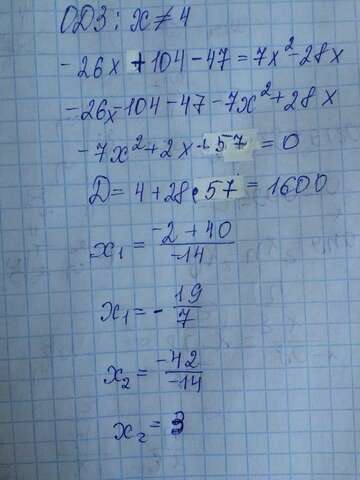 ОДЗ: x ≠ 4
-26x + 104 - 47 = 7x² - 28x
-26x - 104 - 47 - 7x² + 28x
-7x² + 2x + 57 = 0
D = 4 + 28 · 57 = 1600
x₁ = (-2 + 40)/(-14)
x₁ = - 19/7
x₂ = -42/-14
x₂ = 3